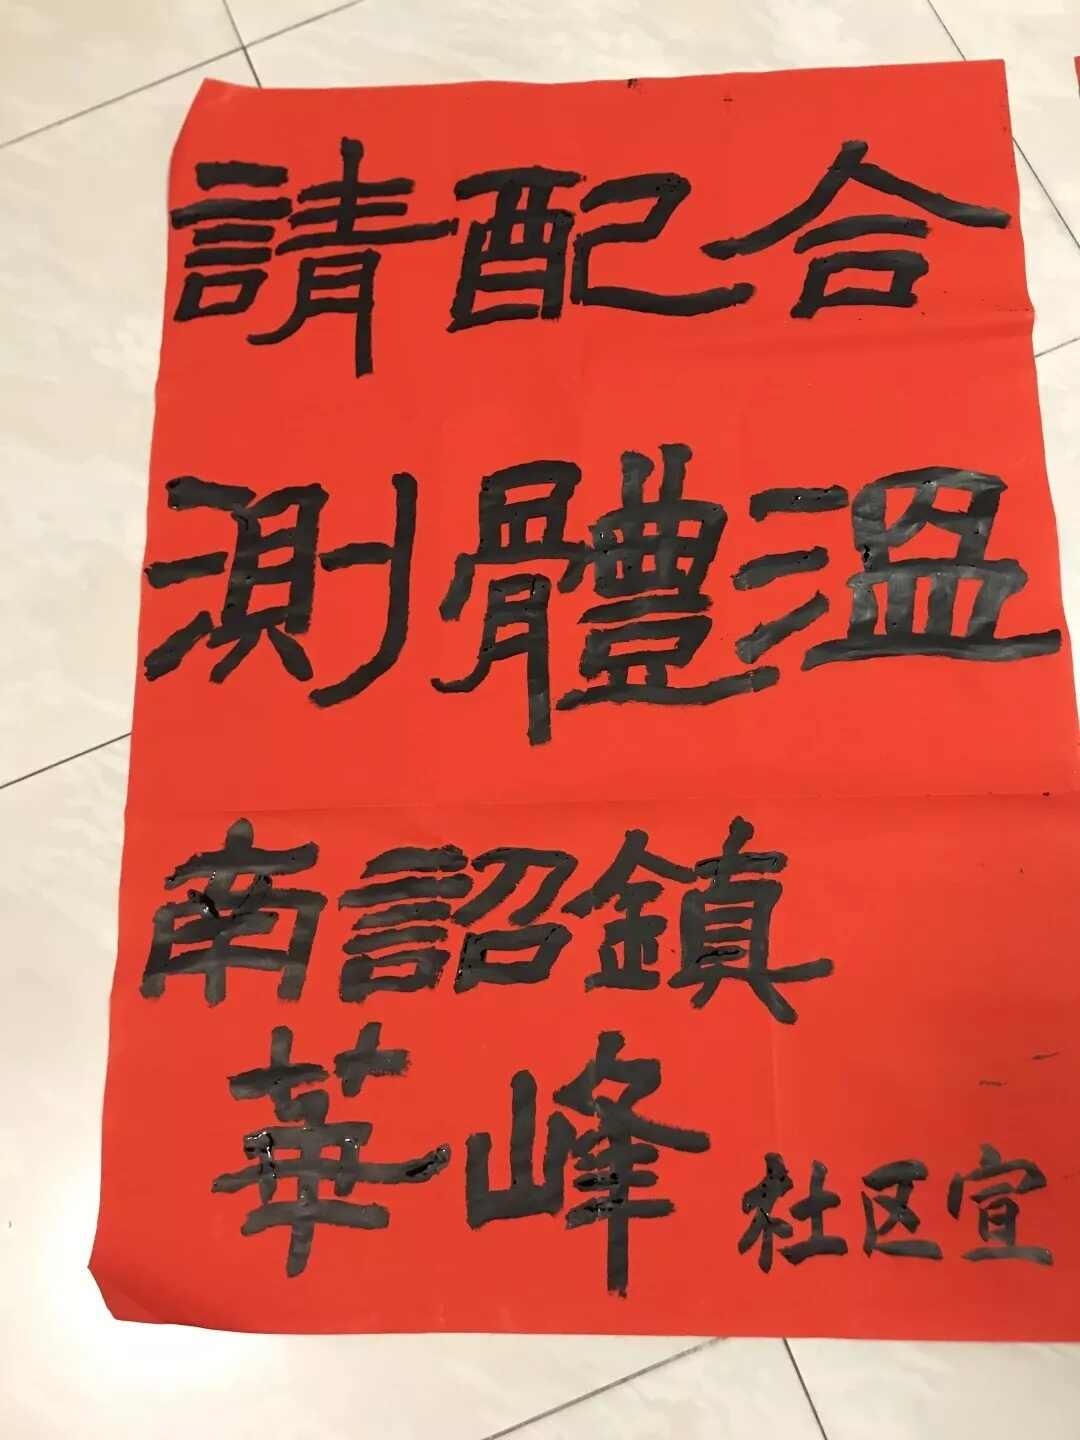 請配合
測體溫
南詔鎮
華峰社区宣